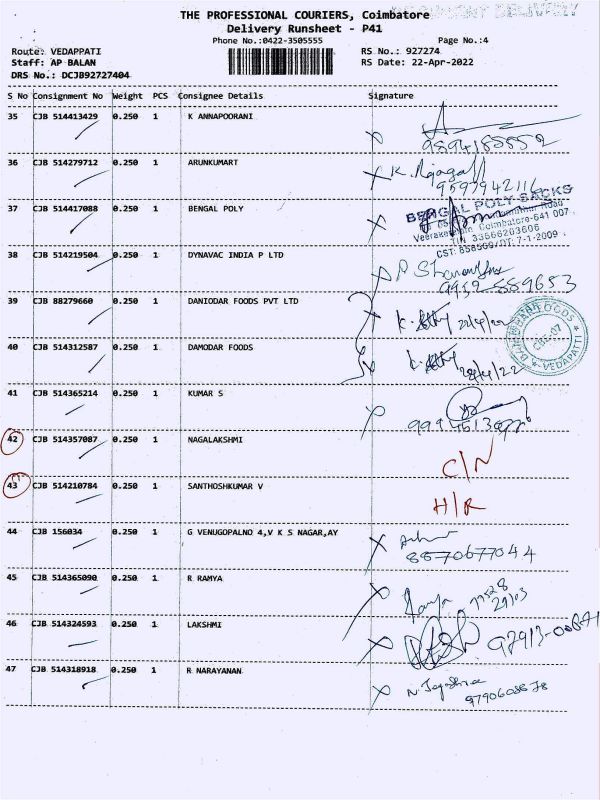 THE PROFESSIONAL COURIERS, Coimbatore
Delivery Runsheet - P41
Phone No.:0422-3505555 Page No.:4
Route: VEDAPPATI RS No.: 927274
Staff: AP BALAN RS Date: 22-Apr-2022
DRS No.: DCJB92727404
S No Consignment No Weight PCS Consignee Details Signature
35 CJB 514413429 0.250 1 K ANNAPOORANI
36 CJB 514279712 0.250 1 ARUNKUMART
37 CJB 514417088 0.250 1 BENGAL POLY
BENGAL POLY SACKS
Coimbatore-641 007
TIN 33566203606
CST: 858560/DT: 7-1-2009
38 CJB 514219504 0.250 1 DYNAVAC INDIA P LTD
39 CJB 88279660 0.250 1 DANIODAR FOODS PVT LTD
40 CJB 514312587 0.250 1 DAMODAR FOODS
CBE-07
VEDAPATTI
41 CJB 514365214 0.250 1 KUMAR S
42 CJB 514357087 0.250 1 NAGALAKSHMI C/N
43 CJB 514210784 0.250 1 SANTHOSHKUMAR V H/R
44 CJB 156034 0.250 1 G VENUGOPALNO 4,V K S NAGAR,AY
8870677044
45 CJB 514365090 0.250 1 R RAMYA
46 CJB 514324593 0.250 1 LAKSHMI
47 CJB 514318918 0.250 1 R NARAYANAN